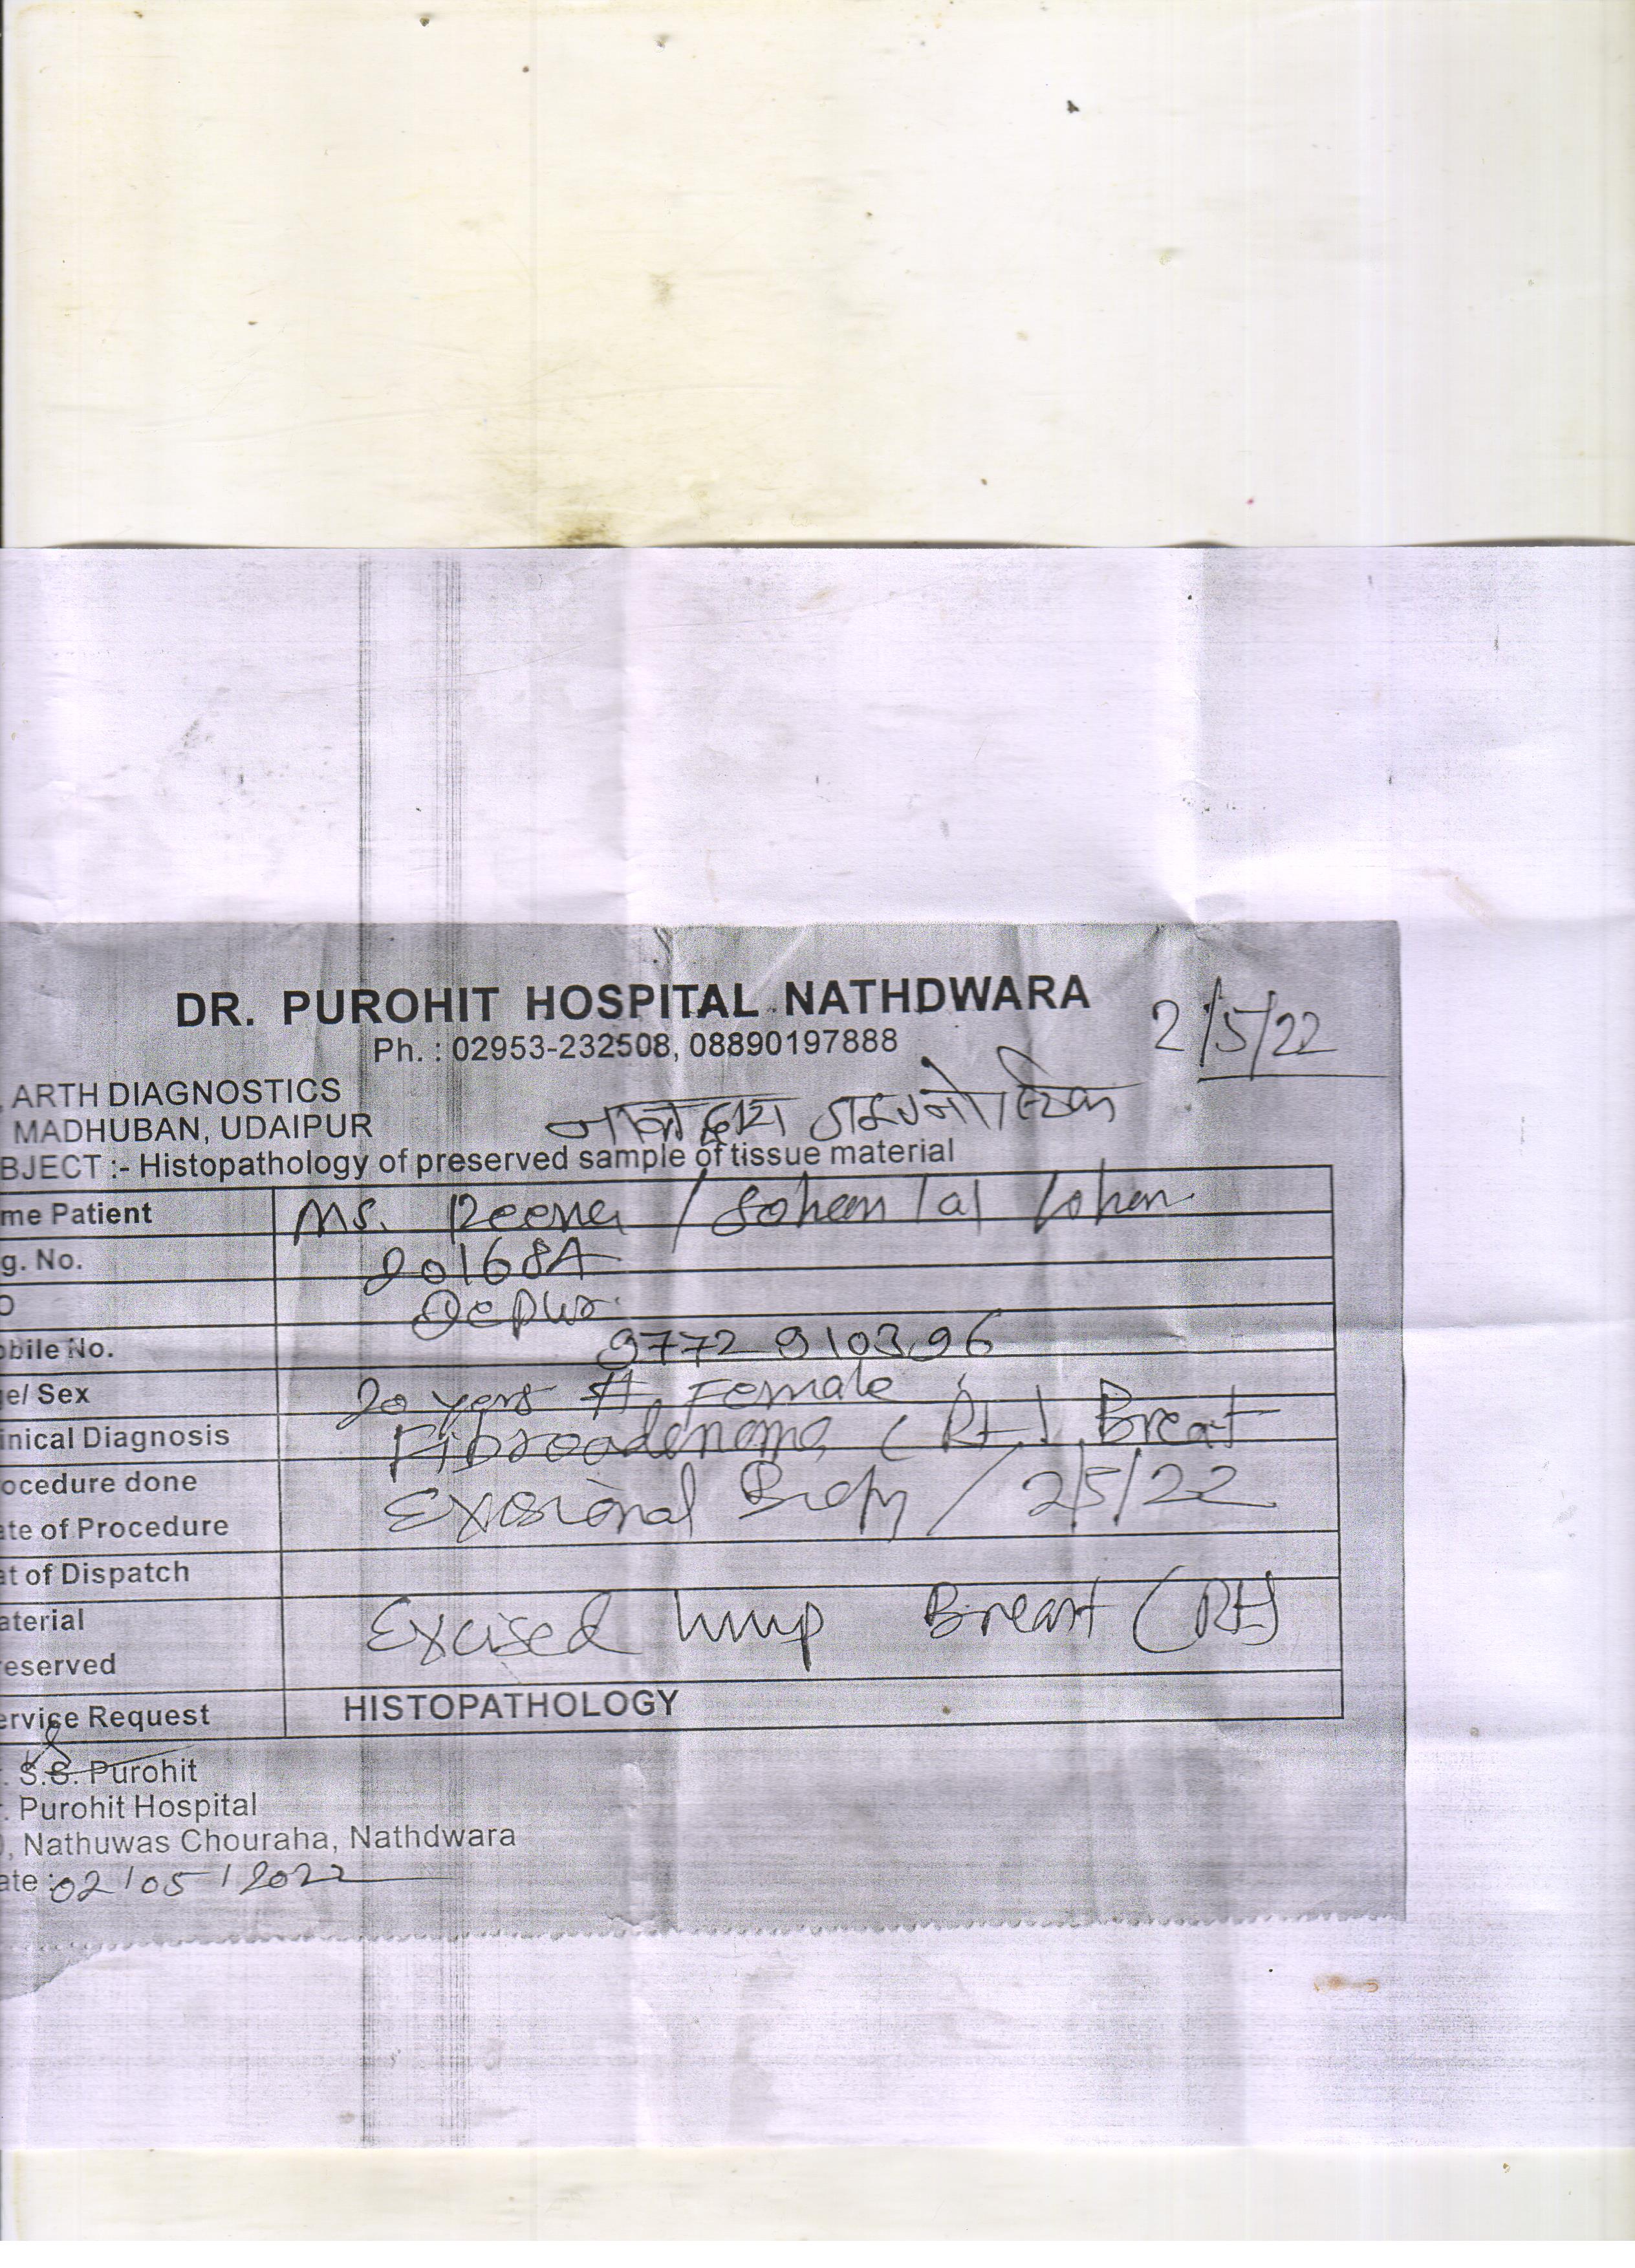 DR. PUROHIT HOSPITAL NATHDWARA
2/5/22
Ph. : 02953-232508, 08890197888
ARTH DIAGNOSTICS
MADHUBAN, UDAIPUR
BJECT :- Histopathology of preserved sample of tissue material
me Patient Ms. Reena / Sohan lal
g. No. 20168A
O
bile No. 9772910396
e/ Sex 20 years Female
inical Diagnosis Fibroadenoma (Rt) Breast
ocedure done Excisional Biopsy / 2/5/22
te of Procedure
at of Dispatch
aterial Excised lump Breast (Rt)
eserved
ervice Request HISTOPATHOLOGY
. S.S. Purohit
. Purohit Hospital
, Nathuwas Chouraha, Nathdwara
ate : 02/05/2022